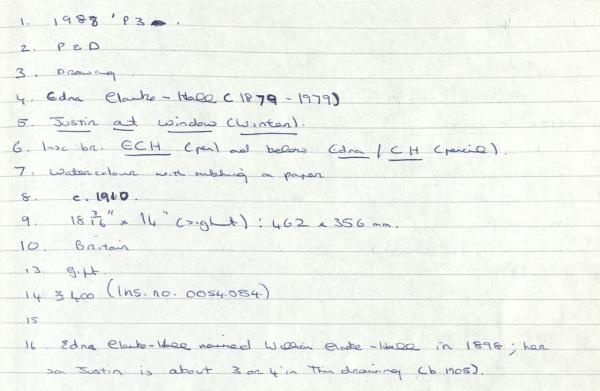 1. 1988 P3
2. P & D
3. Drawing
4. Edna Clarke-Hall (1879 - 1979)
5. Justin at window (Winter).
6. Insc br. ECH (pen) and below Edna / CH (pencil).
7. Watercolour with rubbing on paper
8. c. 1910.
9. 18 3/16" x 14" (sight) : 462 x 356 mm.
10. Britain
13. gift.
14 400 (Ins. no. 0054084)
15
16. Edna Clarke-Hall married William Clarke-Hall in 1898; her
son Justin is about 3 or 4 in this drawing (b. 1905).